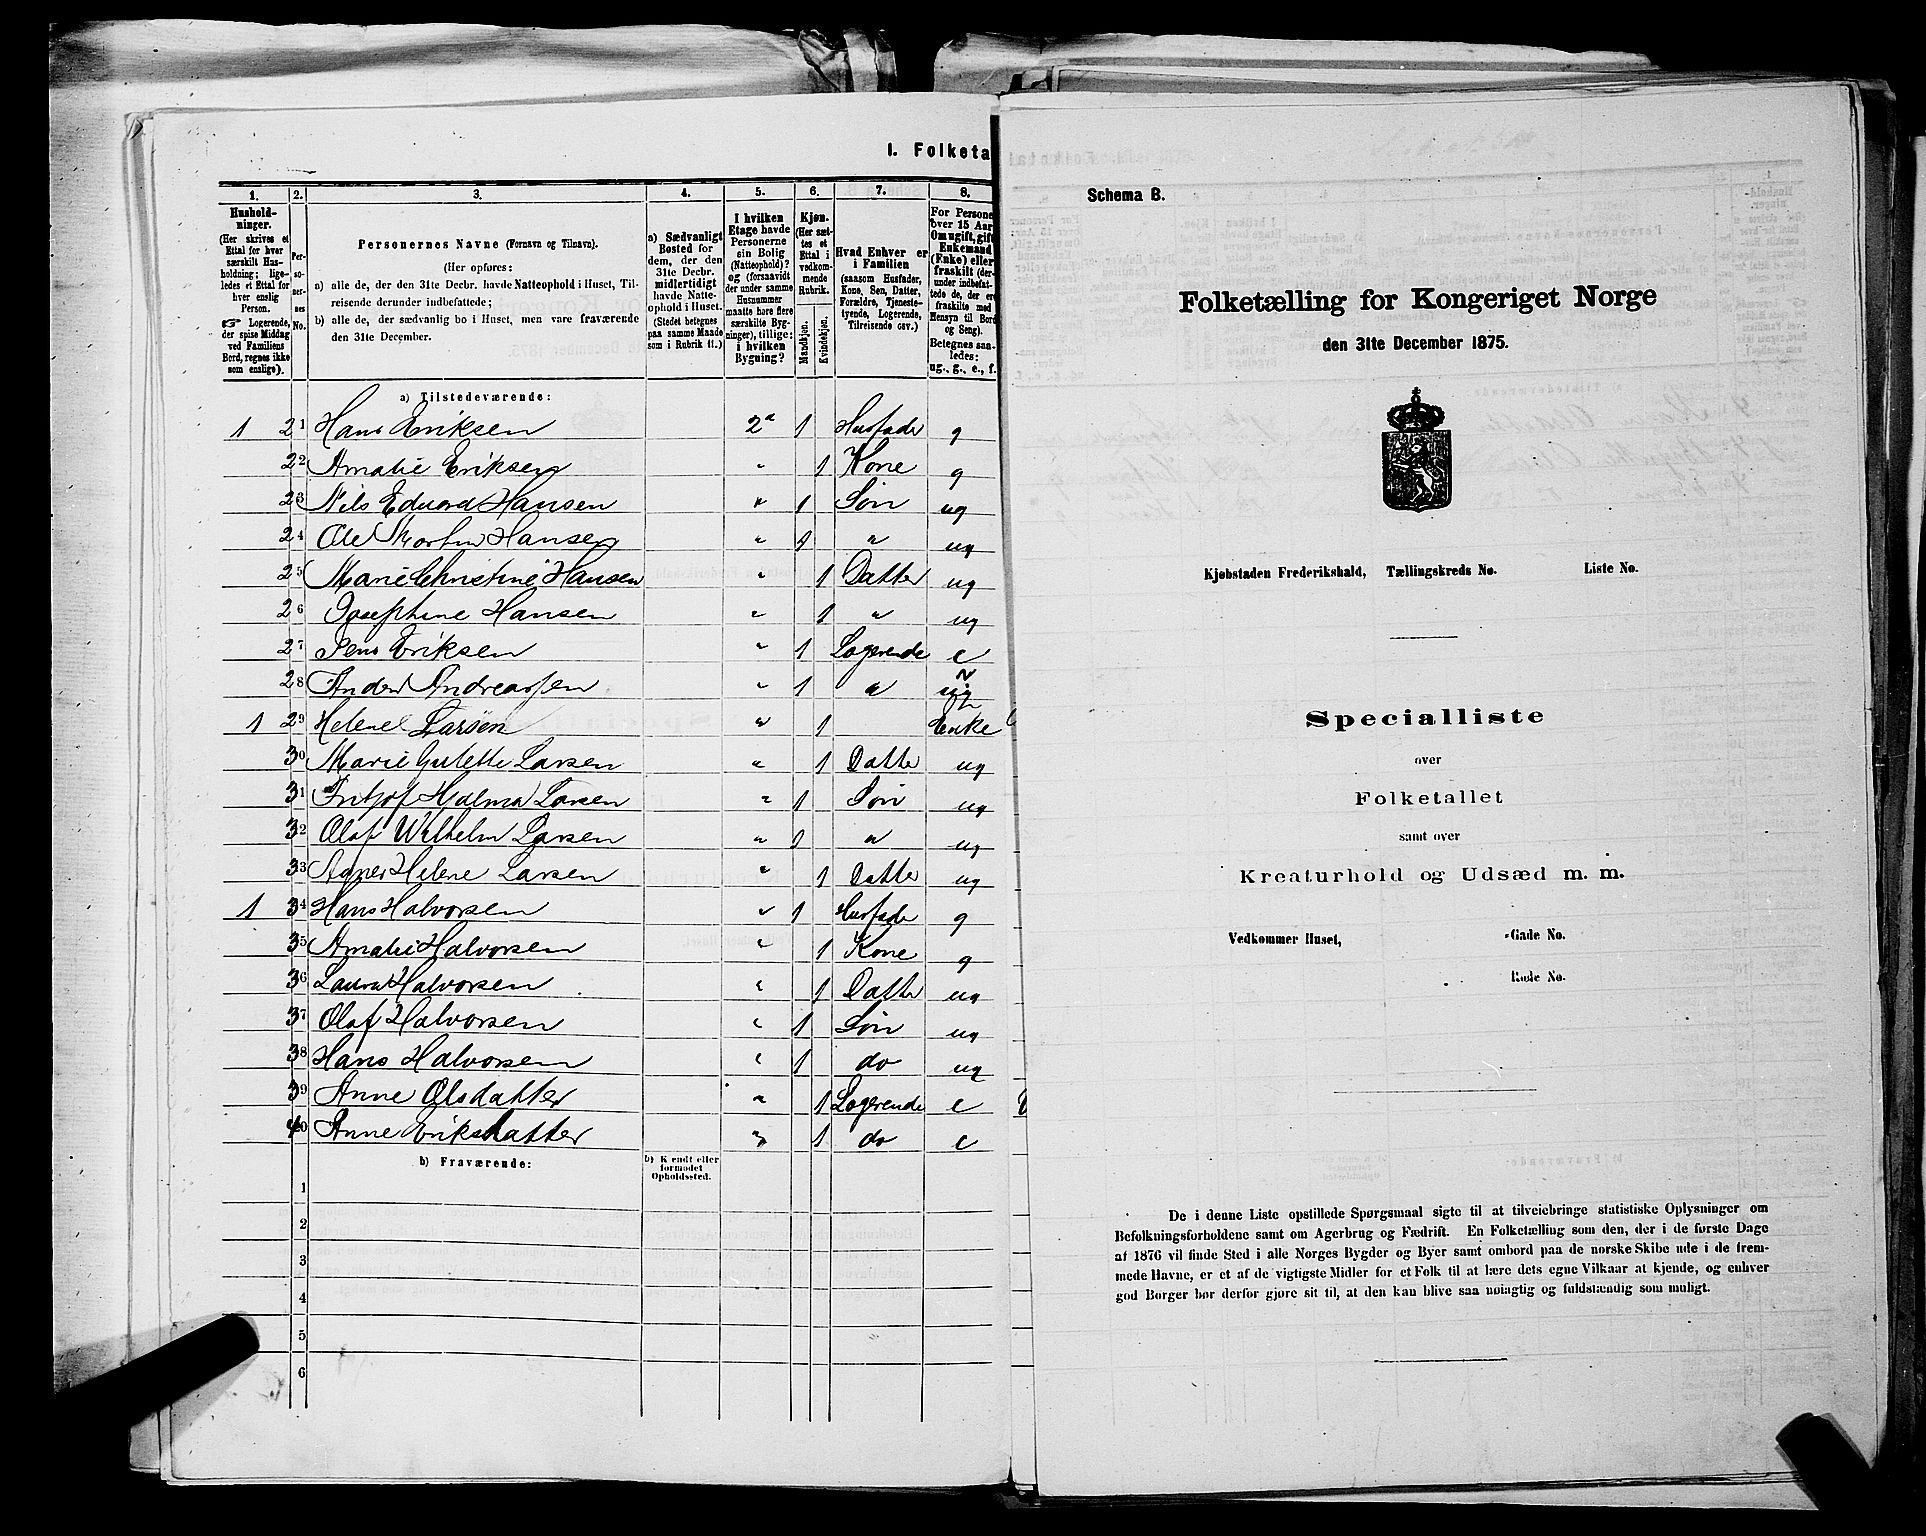 I. Folketa
1.
2.
3.
4.
5.
6.
7.
8.
Hushold-
ninger.
(Her skrives et
Ettal for hver
særskilt Hus-
holdning; lige-
ledes et Ettal for
hver enslig
Person.
☞ Logerende,
der spise Middag
ved Familiens
Bord, regnes ikke
som enslige).
Per-
so-
ner-
nes
No.
Personernes Navne (Fornavn og Tilnavn).
(Her opføres:
a) alle de, der den 31te Decbr. havde Natteophold i Huset, Til-
reisende derunder indbefattede;
b) alle de, der sædvanlig bo i Huset, men vare fraværende
den 31te December.
a) Sædvanligt
Bosted for
dem, der den
31te Decbr.
midlertidigt
havde Natte-
ophold i Huset.
(Stedet betegnes
paa samme Maade
som i Rubrik 11.)
I hvilken
Etage havde
Personerne
sin Bolig
(Natteophold)?
og (forsaavidt
der under samme
Husnummer
maatte høre flere
særskilte Byg-
ninger), tillige:
i hvilken
Bygning?
Kjøn.
(Her sæt-
tes et
Ettal i
vedkom-
mende
Rubrik.
Mandkjøn.
Kvindekjøn.
Hvad Enhver er
i Familien
(saasom Husfader,
Kone, Søn, Datter,
Forældre, Tjeneste-
tyende, Logerende,
Tilreisende osv.)
For Persone
over 15 Aar
Omugift, gift
Enkemand
(Enke) eller
fraskilt (der-
under indbefat-
tede de, der er
fraskilte med
Hensyn til Bord
og Seng).
Betegnes saa-
ledes:
ug., g., e., f.
a) Tilstedeværende:
1 21 Hans Eriksen 2a 1 Husfader g
22 Amalie Eriksen " 1 Kone g
23 Nils Eduard Hansen " 1 Søn ug
24 Ole Martin Hansen " 1 " ug
25 Marie Christine Hansen " 1 Datter ug
26 Josephine Hansen " 1 " ug
27 Jens Eriksen " 1 Logerende e
28 Anders Andreassen " 1 "
1 29 Helene Larsen " 1 Enke
30 Marie Gulette Larsen " 1 Datter ug
31 Fritjof Halmar Larsen " 1 Søn ug
32 Olaf Wilhelm Larsen " 1 " ug
33 Agnes Helene Larsen " 1 Datter ug
1 34 Hans Halvorsen " 1 Husfader g
35 Amalie Halvorsen " 1 Kone g
36 Laura Halvorsen " 1 Datter ug
37 Olaf Halvorsen " 1 Søn ug
38 Hans Halvorsen " 1 do ug
39 Anne Olsdatter " 1 Logerende e
40 Anne Eriksdatter " 1 do e
b) Fraværende:
b) Kendt eller
formodet
Opholdssted.
1
2
3
4
5
6
Schema B.
Folketælling for Kongeriget Norge
den 31te December 1875.
Kjøbstaden Frederikshald, Tællingskreds No. Liste No.
Specialliste
over
Folketallet
samt over
Kreaturhold og Udsæd m. m.
Vedkommer Huset, -Gade No.
Rode No.
De i denne Liste opstillede Spørgsmaal sigte til at tilveiebringe statistiske Oplysninger om
Befolkningsforholdene samt om Agerbrug og Fædrift. En Folketælling som den, der i de første Dage
af 1876 vil finde Sted i alle Norges Bygder og Byer samt ombord paa de norske Skibe ude i de frem-
mede Havne, er et af de vigtigste Midler for et Folk til at lære dets egne Vilkaar at kjende, og enhver
god Borger bør derfor gjøre sit til, at den kan blive saa nøiagtig og fuldstændig som muligt.